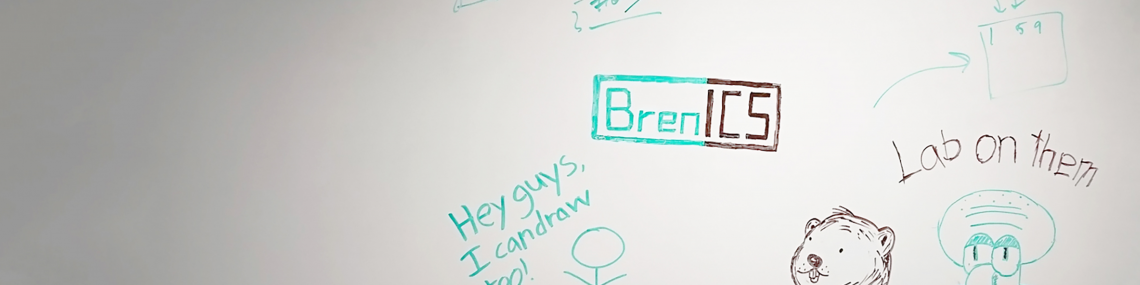 1 59
BrenICS
Lab on them
Hey guys,
I candraw
too!